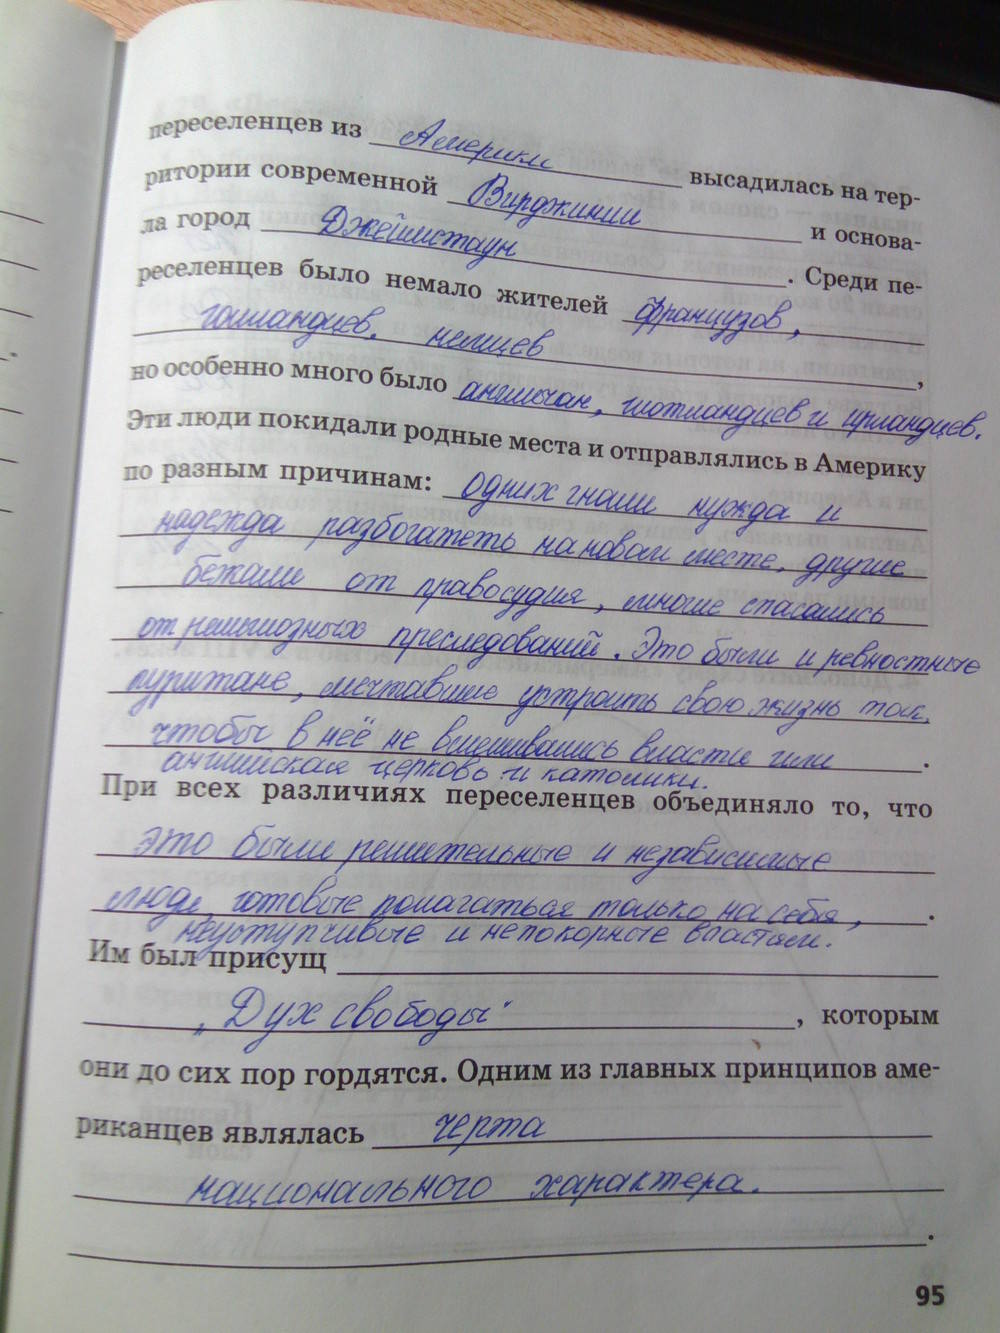 переселенцев из Америки высадилась на тер-
ритории современной Вирджинии и основа-
ла город Джеймстаун. Среди пе-
реселенцев было немало жителей французов,
голландцев, немцев,
но особенно много было англичан, шотландцев и ирландцев.
Эти люди покидали родные места и отправлялись в Америку
по разным причинам: одних гнали нужда и
надежда разбогатеть на новом месте, другие
бежали от правосудия, многие спасались
от религиозных преследований. Это были и ревностные
пуритане, мечтавшие устроить свою жизнь так,
чтобы в неё не вмешивались власти или.
английская церковь и католики.
При всех различиях переселенцев объединяло то, что
это были решительные и независимые
люди, готовые полагаться только на себя,.
неуступчивые и непокорные властям.
Им был присущ
"Дух свободы", которым
они до сих пор гордятся. Одним из главных принципов аме-
риканцев являлась черта
национального характера.
.
95